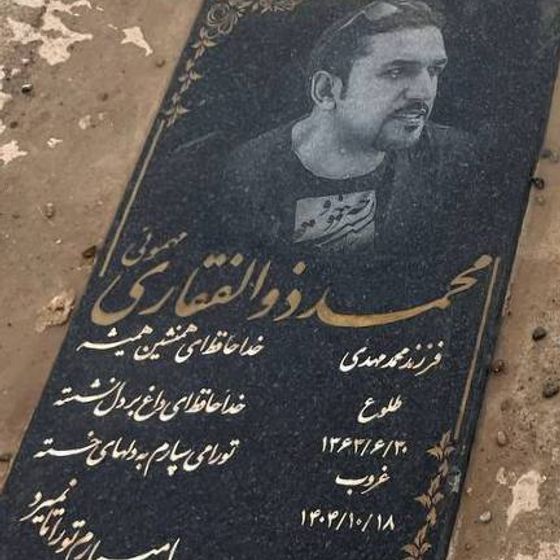 مهموئی
محمد ذوالفقاری
فرزند محمدمهدی
طلوع
۱۳۶۲/۶/۳۰
غروب
۱۴۰۴/۱۰/۱۸
خداحافظ ای همنشین همیشه
خداحافظ ای داغ بر دل نشسته
تو را می سپارم به دلهای خسته
تو را تا نمیرد